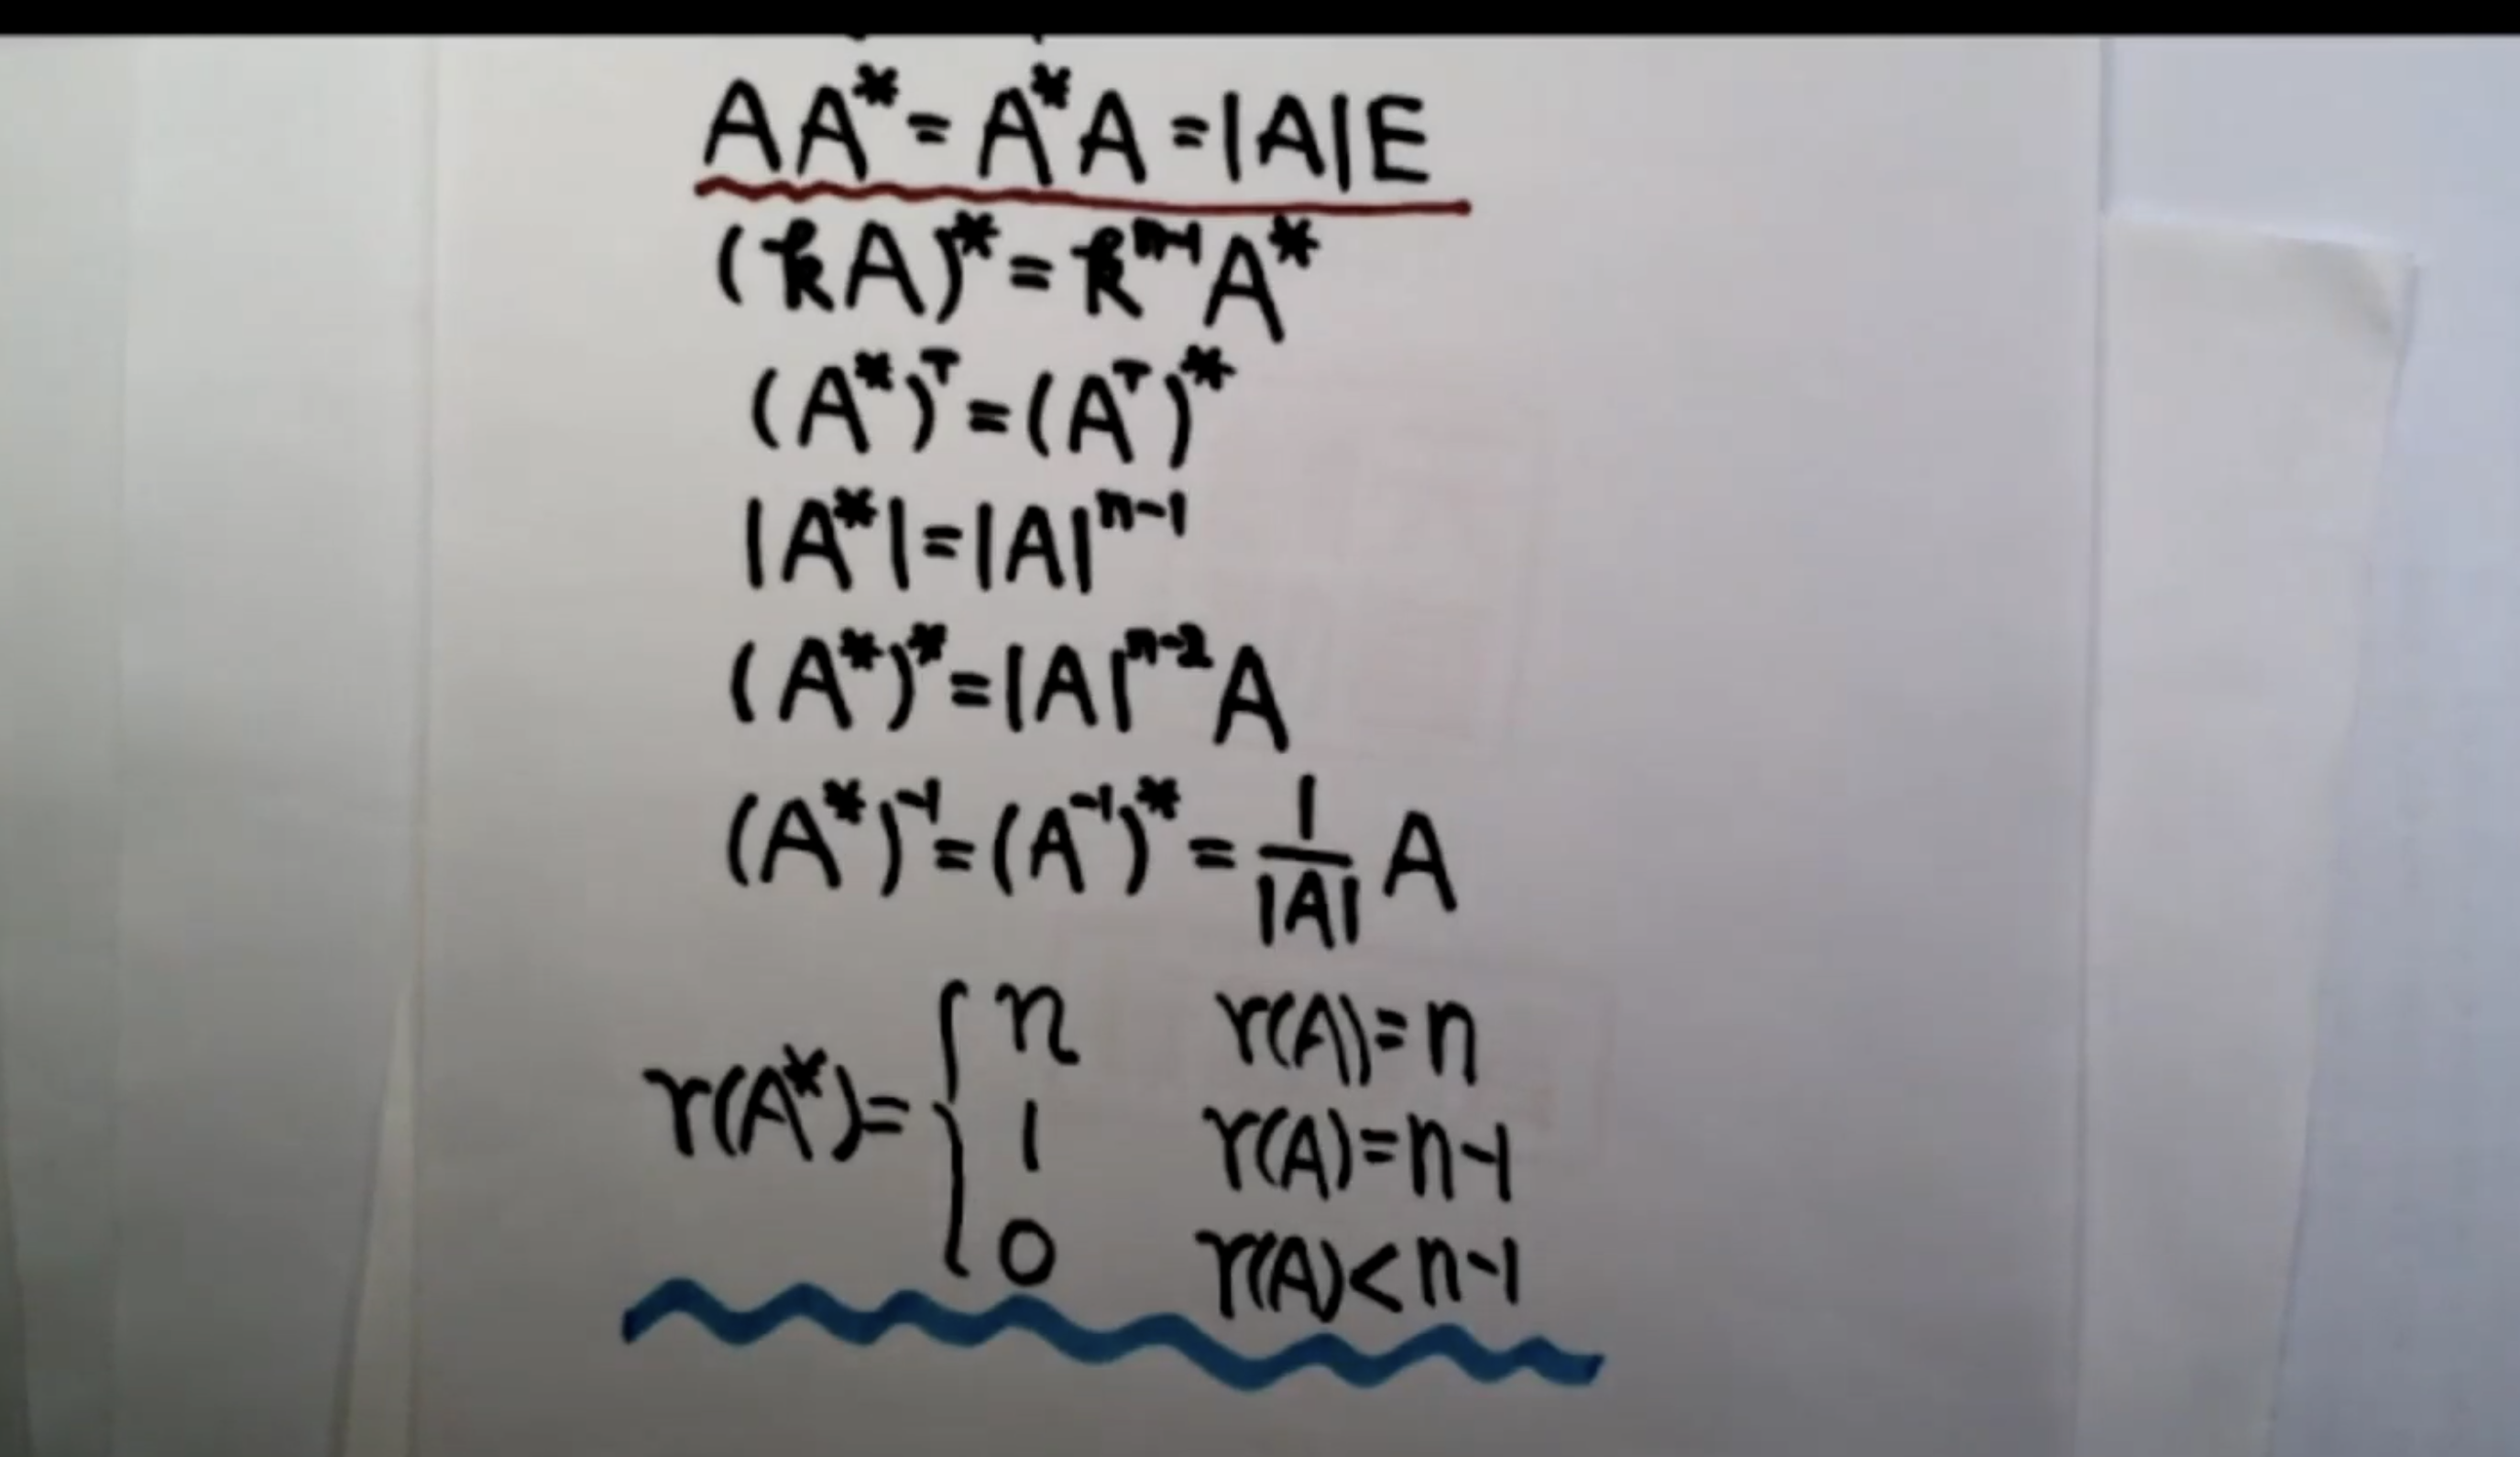 AA*=A*A=|A|E
(kA)*=kⁿ⁻¹A*
(A*)ᵀ=(Aᵀ)*
|A*|=|A|ⁿ⁻¹
(A*)*=|A|ⁿ⁻²A
(A*)⁻¹=(A⁻¹)*=1/|A| A
r(A*)={ n r(A)=n
1 r(A)=n-1
0 r(A)<n-1